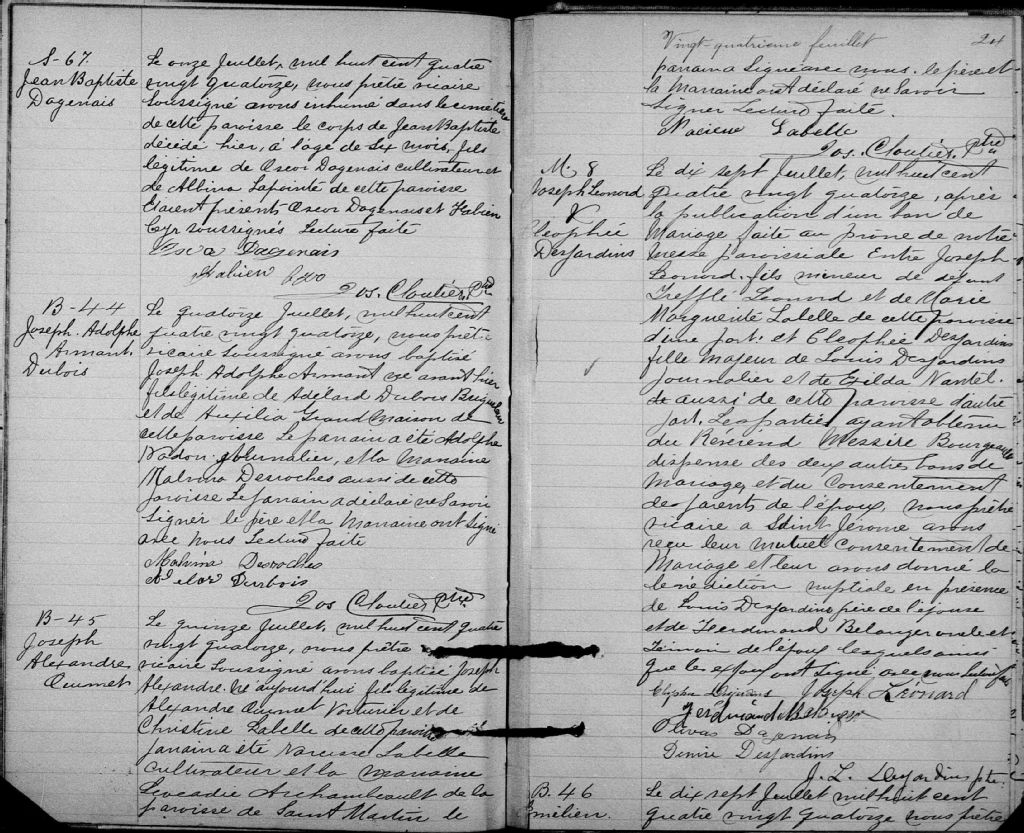 S-67.
Jean Baptiste
Dagenais
Le onze Juillet, mil huit cent quatre
vingt quatorze, nous prêtre vicaire
Soussigné avons inhumé dans le cimetière
de cette paroisse le corps de Jean Baptiste
décédé hier, à l'age de six mois, fils
légitime de Oscar Dagenais cultivateur et
de Albina Lapointe de cette paroisse
Etaient présents Oscar Dagenais et Fabien
Cyr soussignés Lecture faite
Dagenais
Jos. Cloutier, Ptre
B-44
Joseph-Adolphe
Armant
Dubois
Le quatorze Juillet, mil huit cent
quatre vingt quatorze, nous prêt-
vicaire soussigné avons baptisé
Joseph Adolphe Armant né avant hier
fils légitime de Adélard Dubois
et de Auxilia Grand Maison de
cette paroisse Le parrain a été Adolphe
Nadon, Journalier, et la Marraine
Malvina Desroches aussi de cette
paroisse Le parrain a déclaré ne Savoir
Signer le père et la Marraine ont Signé
avec nous Lecture faite
Malvina Desroches
Dubois
Jos Cloutier Ptre
B-45
Joseph
Alexandre
Ouimet
Le quinze Juillet, mil huit cent quatre
vingt quatorze, nous prêtre
vicaire Soussigné avons baptisé Joseph
Alexandre né aujourd'hui fils légitime de
Alexandre Ouimet Voiturier et de
Christine Labelle de cette paroisse
parrain a été Narcisse Labelle
cultivateur et la marraine
Léocadie Archambault de la
paroisse de Saint Martin le
Vingt-quatrième feuillet 24
parrain a Signé avec nous. le père et
la Marraine ont déclaré ne Savoir
Signer Lecture faite.
Labelle
Jos. Cloutier Ptre
M. 8
Joseph Leonard
&
Cleophée
Desjardins
Le dix sept Juillet, mil huit cent
quatre vingt quatorze, après
la publication d'un ban de
Mariage faite au prone de notre
messe paroissiale Entre Joseph
Leonard, fils mineur de defunt
Treffle Leonard et de Marie
Marguerite Labelle de cette paroisse
d'une part: et Cleophée Desjardins
fille Majeur de Louis Desjardins
Journalier et de Exilda Nantel.
de aussi de cette paroisse d'autre
part, Les parties ayant obtenu
du Révérend Messire Bourgeault
dispense des deux autres bans de
Mariage, et du Consentement
des parents de l'époux, nous prêtre
vicaire a Saint Jérome avons
reçu leur mutuel consentement de
Mariage et leur avons donné la
bénédiction nuptiale en présence
de Louis Desjardins père de l'épouse
et de Ferdinand Belanger oncle et
Témoin de l'époux lesquels ainsi
que les époux ont Signé avec nous Lecture faite
Joseph Léonard
Ferdinand
Desjardins
J. L. Desjardins ptre
B. 46
Le dix sept Juillet mil huit cent
quatre vingt quatorze nous prêtre